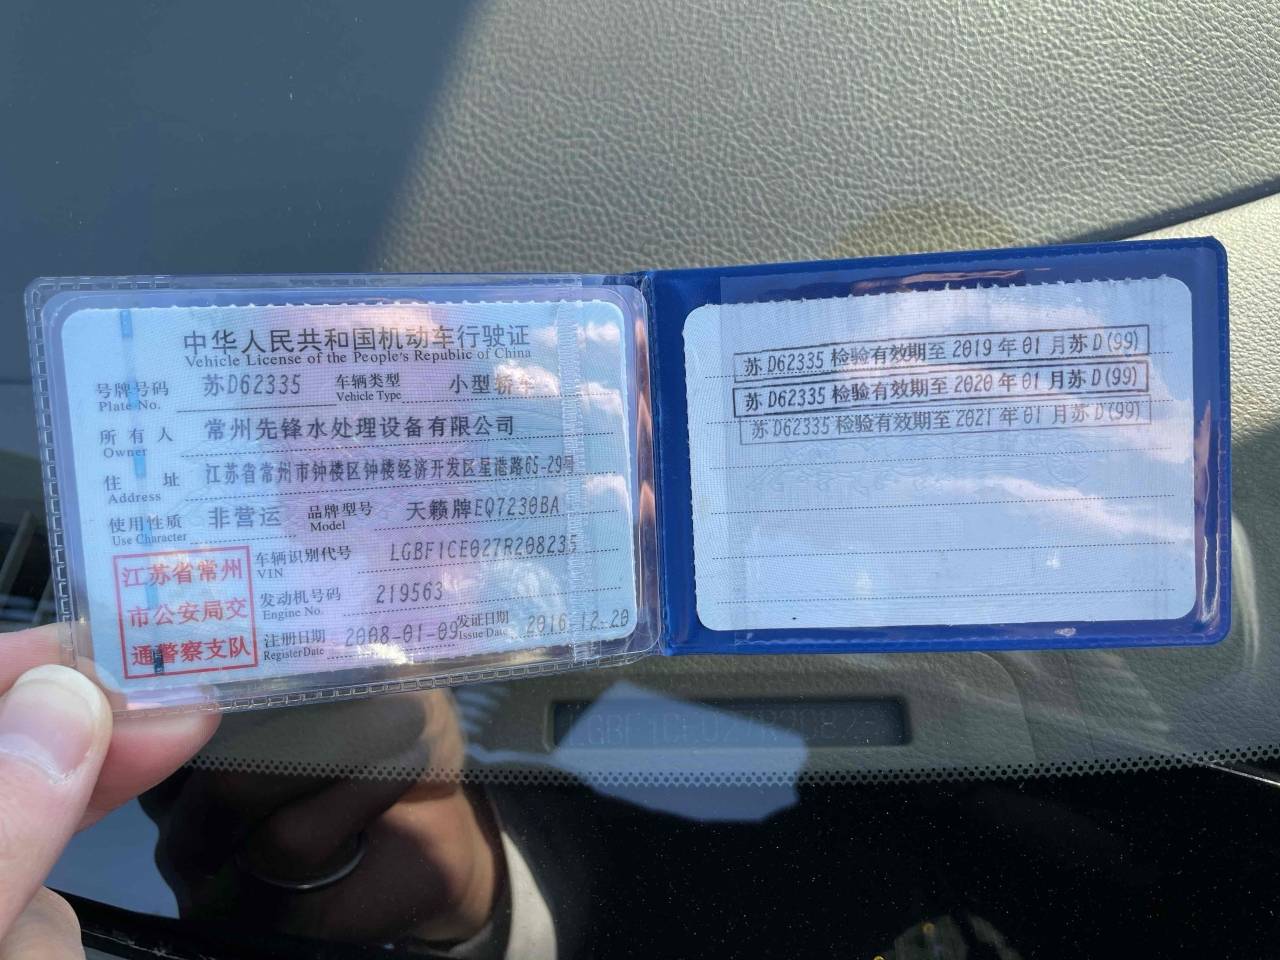 中华人民共和国机动车行驶证
Vehicle License of the People's Republic of China
号牌号码 苏D62335 车辆类型 小型轿车
Plate No. Vehicle Type
所有人 常州先锋水处理设备有限公司
Owner
住址 江苏省常州市钟楼区钟楼经济开发区星港路65-29号
Address
使用性质 非营运 品牌型号 天籁牌EQ7230BA
Use Character Model
车辆识别代号 LGBF1CE027R208235
VIN
发动机号码 219563
Engine No.
注册日期 2008-01-09 发证日期 2016-12-20
Register Date Issue Date
江苏省常州
市公安局交
通警察支队
苏D62335 检验有效期至 2019 年 01 月苏 D(99)
苏D62335 检验有效期至 2020 年 01 月苏 D(99)
苏D62335 检验有效期至 2021 年 01 月苏 D(99)
LGBF1CE027R20823